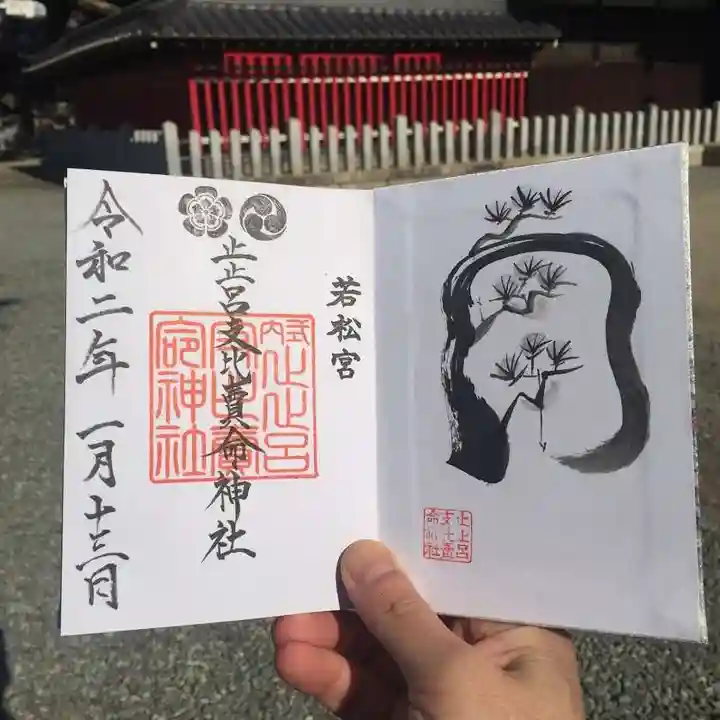 若松宮
止止呂支比賣命神社
令和二年一月十三日
式内止止呂
支比賣
命神社
止止呂
支比賣
命神社